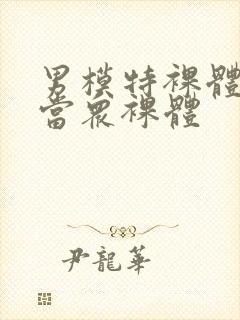 男模特裸體
當眾裸體
尹龍華